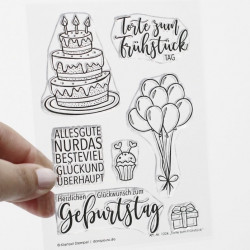 Torte zum
Frühstück
TAG
ALLESGUTE
NURDAS
BESTEVIEL
GLÜCKUND
ÜBERHAUPT
Herzlichen Glückwunsch zum
Geburtstag